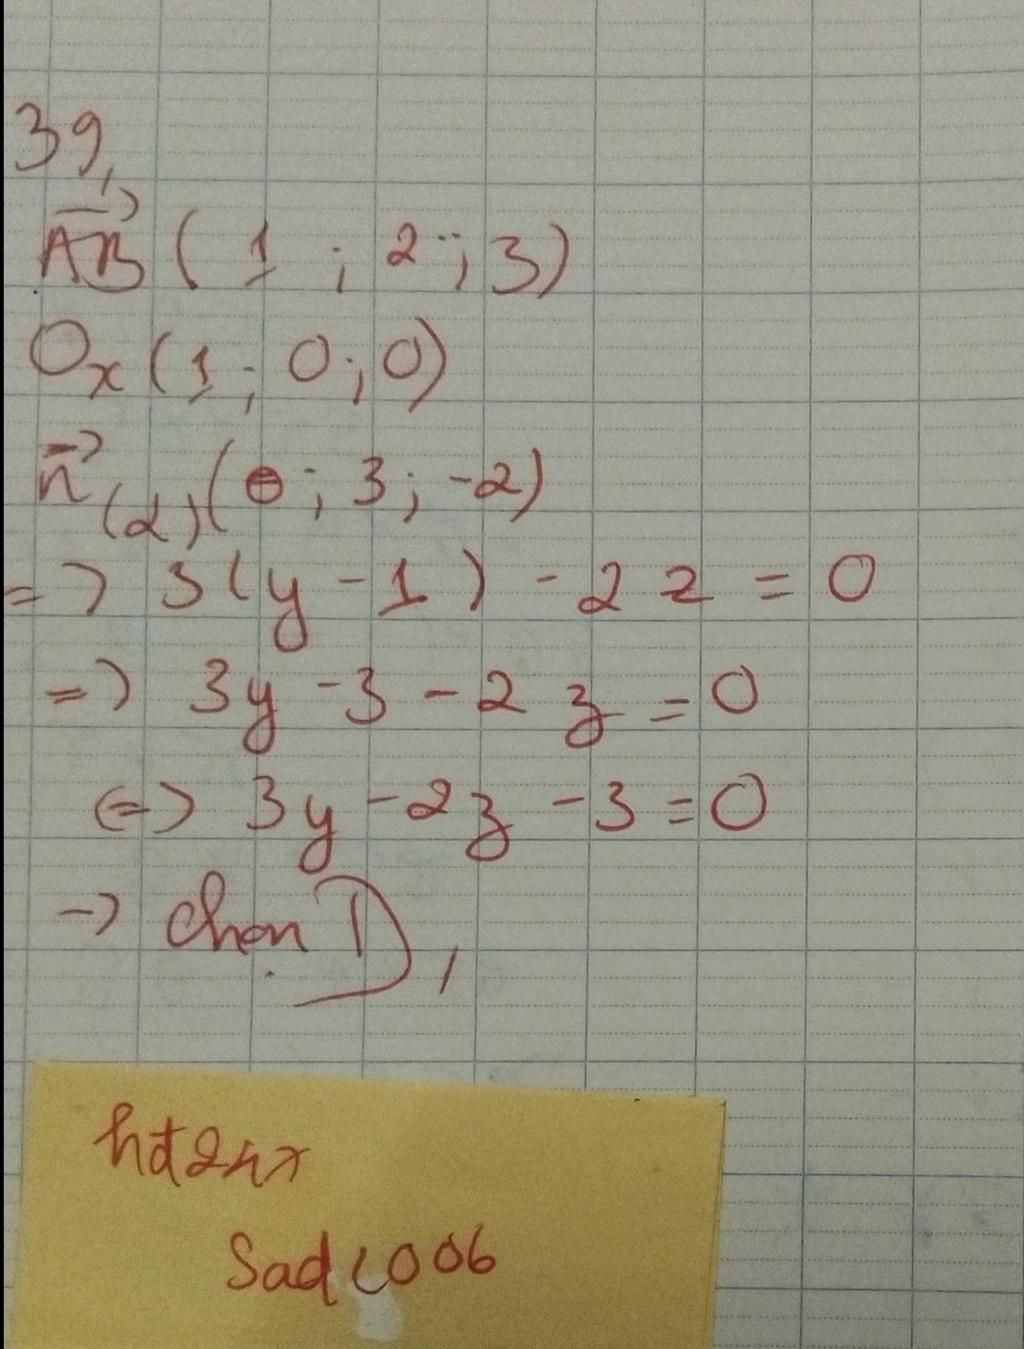 39,
AB→ ( 1 ; 2 ; 3)
Ox (1 ; 0 ; 0)
n→(α) (0 ; 3 ; -2)
=> 3(y - 1) - 2z = 0
=> 3y - 3 - 2z = 0
<=> 3y - 2z - 3 = 0
-> chọn D,
hd24x
Sad1006